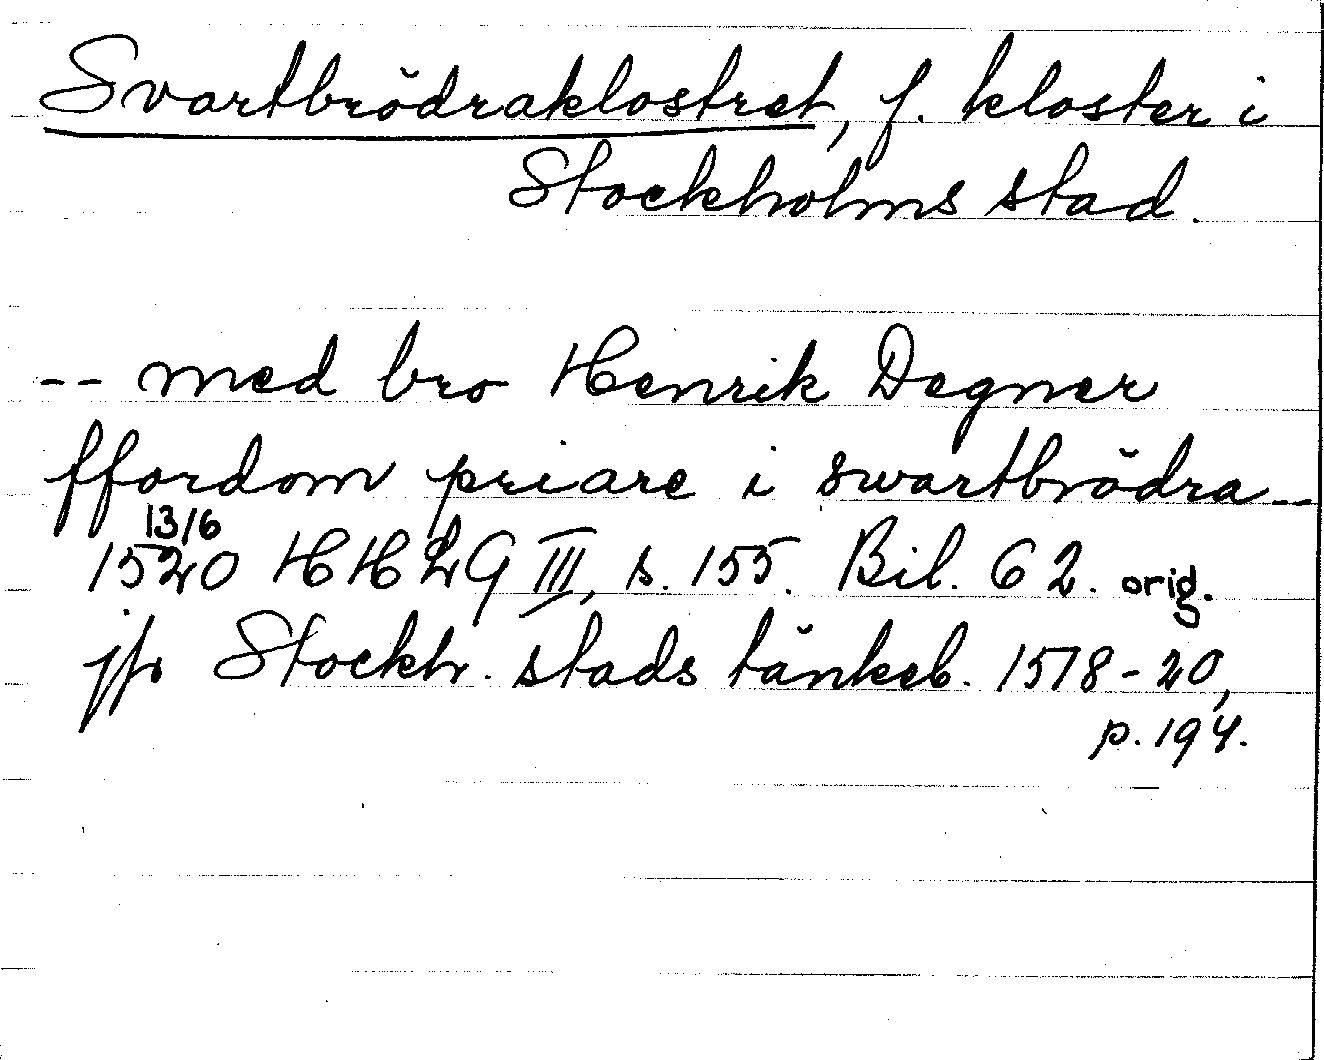 Svartbrödraklostret, f. kloster i
Stockholms stad.
-- med bro Henrik Degner
ffordom priare i swartbrödra --
13/6
1520 HHLG III, s. 155. Bil. 62. orig.
jfr Stockh. stads tänkeb. 1518-20,
p. 194.